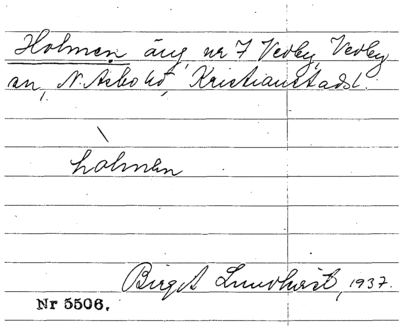 Holmen, äng, nr 7 Vedby, Vedby
sn, N. Åsbo hd, Kristianstads l.
hòlmen
Birgit Lundkvist, 1937.
Nr 5506.